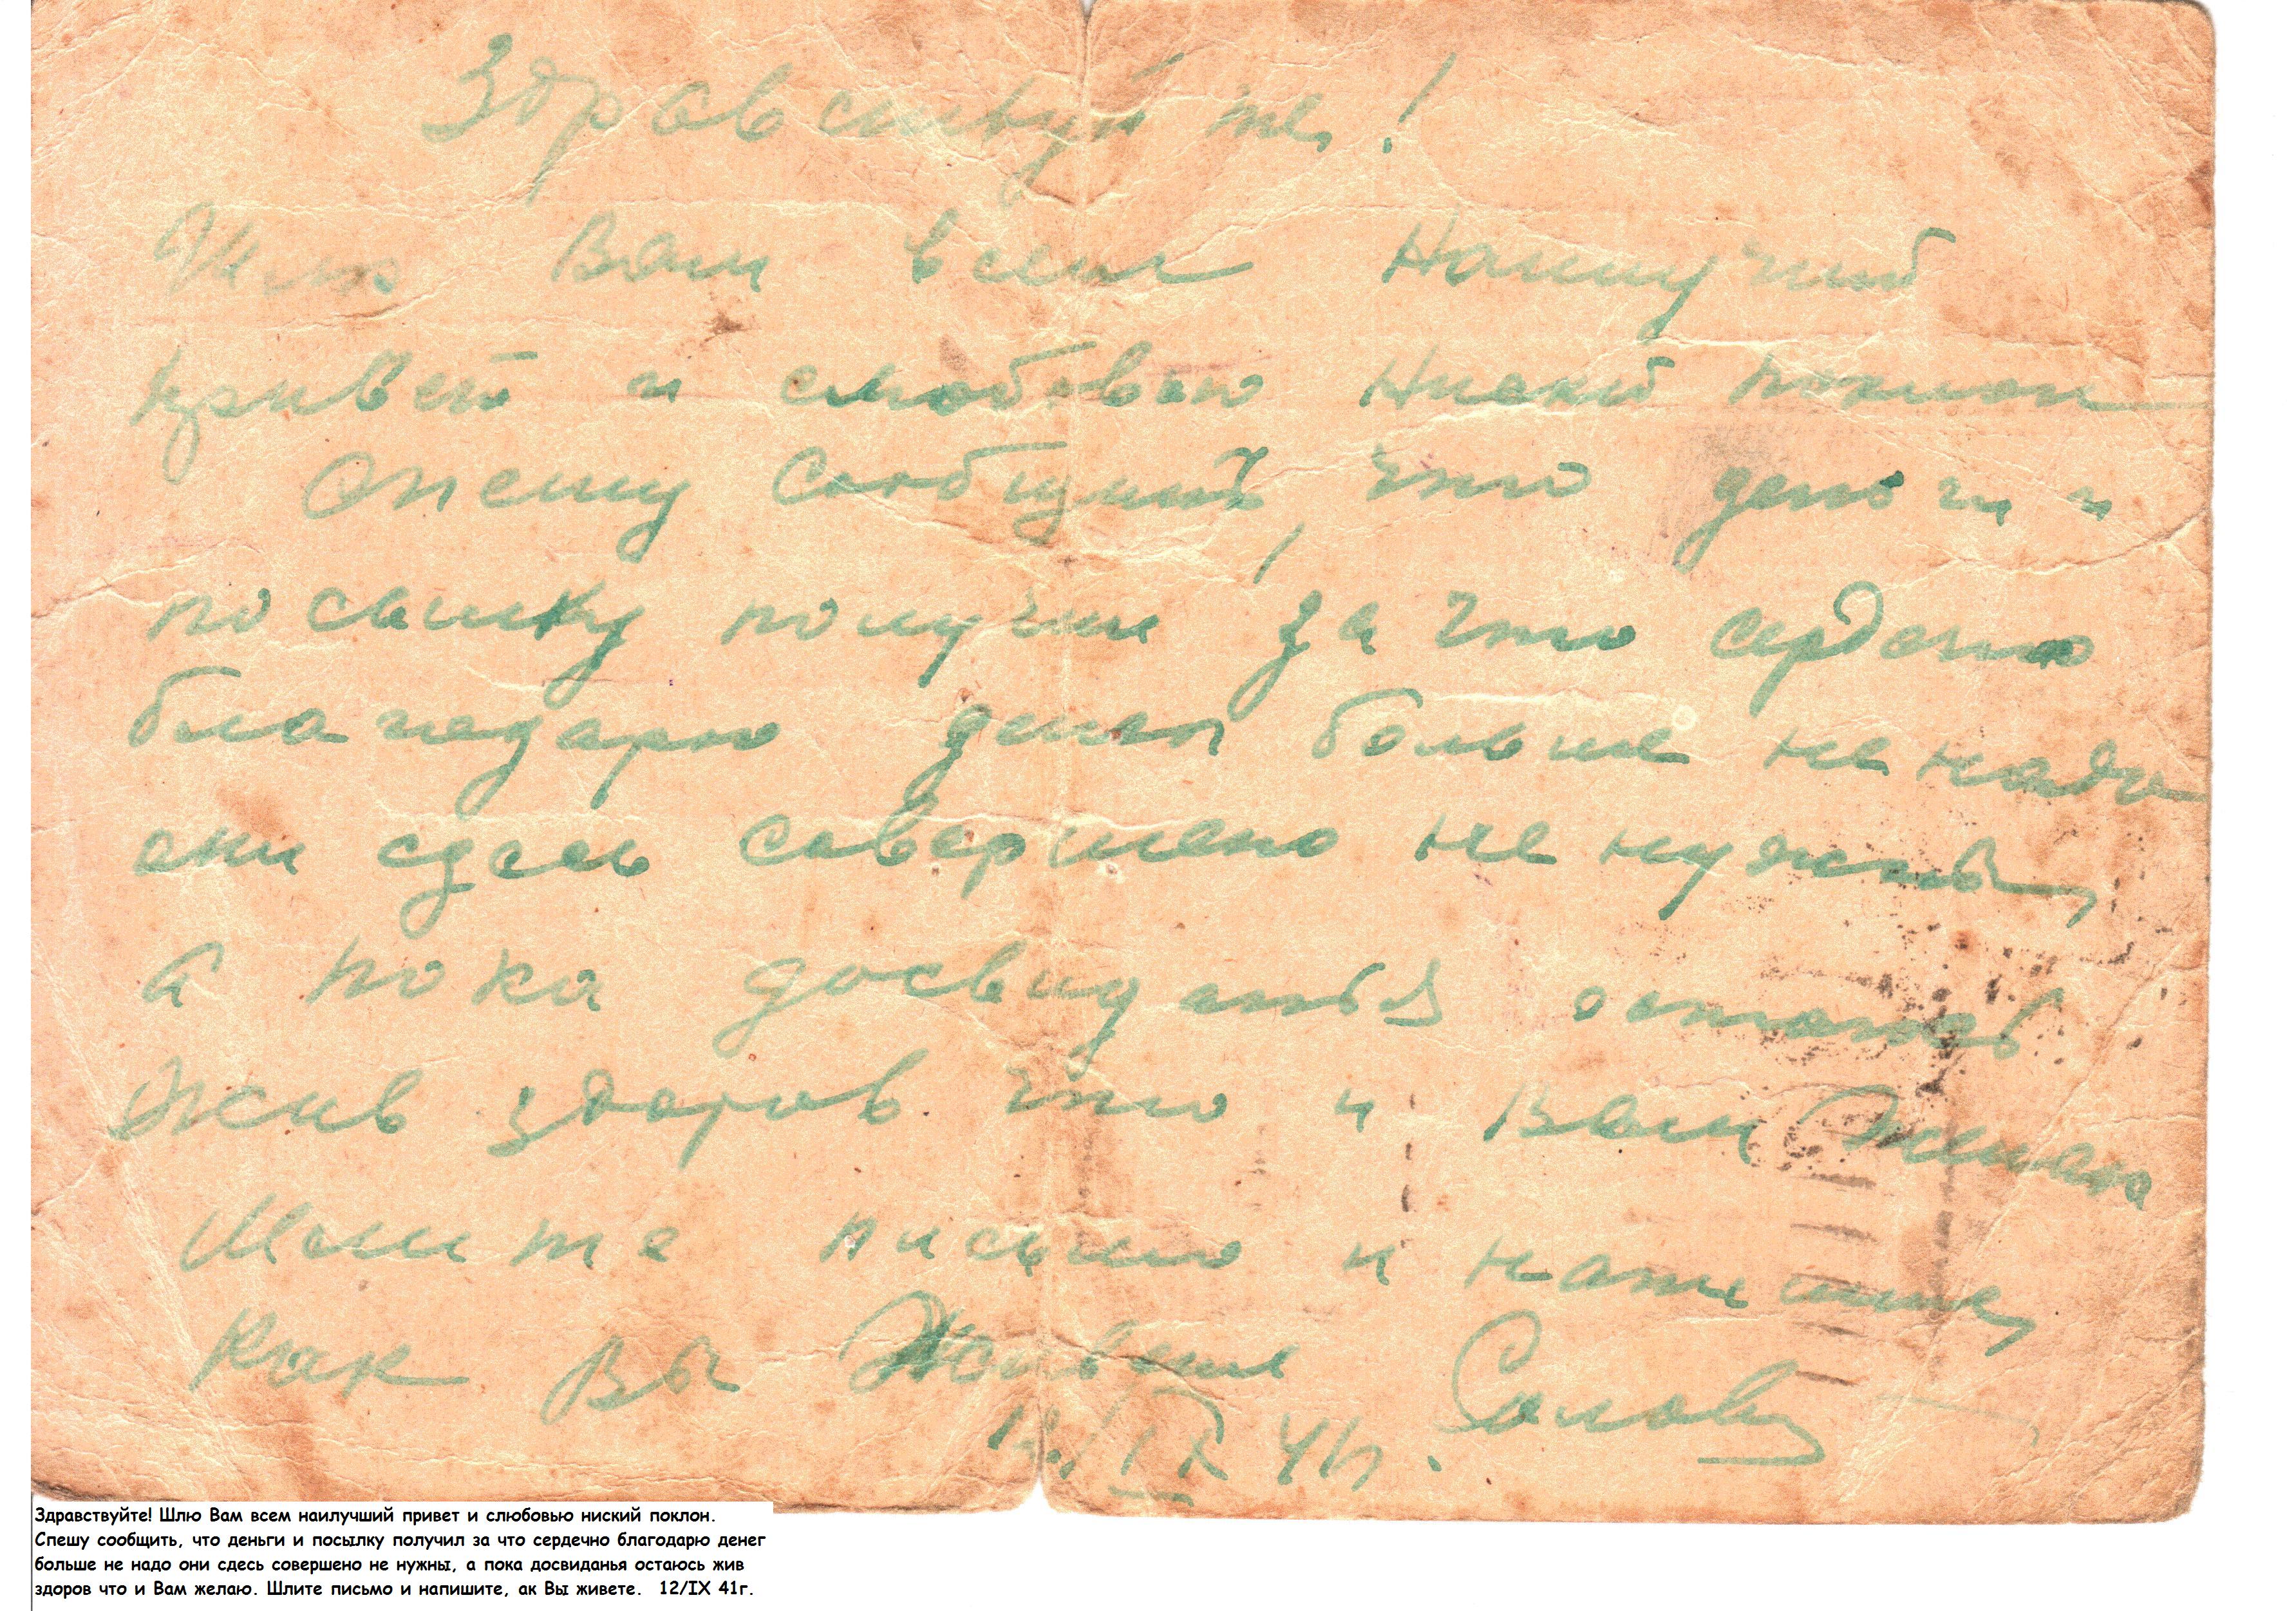 Здравствуйте!
Шлю Вам всем наилучий
привет и слюбовью ниский поклон
Спешу сообщить, что деньги и
посылку получил за что сердечно
благодарю денег больше не надо
они сдесь совершено не нужны,
а пока досвиданья остаюсь
жив здоров что и Вам желаю
Шлите письмо и напишите,
как Вы живете
12/IX 41г.
Здравствуйте! Шлю Вам всем наилучший привет и слюбовью ниский поклон.
Спешу сообщить, что деньги и посылку получил за что сердечно благодарю денег
больше не надо они сдесь совершено не нужны, а пока досвиданья остаюсь жив
здоров что и Вам желаю. Шлите письмо и напишите, ак Вы живете. 12/IX 41г.